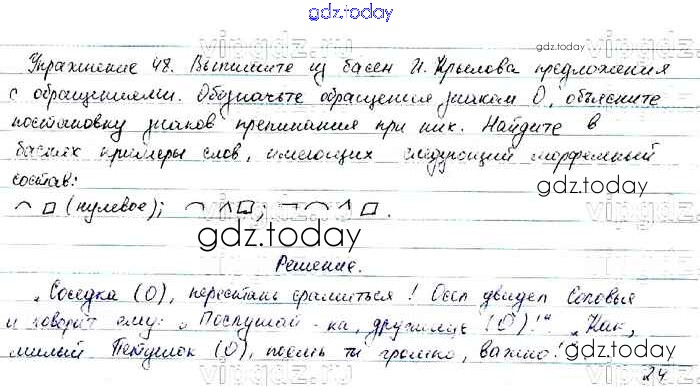 gdz.today
Упражнение 48. Выпишите из басен И. Крылова предложения
с обращениями. Обозначьте обращения знаком О, объясните
постановку знаков препинания при них. Найдите в
баснях примеры слов, имеющих следующий морфемный
состав:
(нулевое);
gdz.today
gdz.today
gdz.today
Решение.
„Соседка (О), перестань срамиться! Осёл увидел Соловья
и говорит ему: „Послушай-ка, дружище (О)!“ „Как,
милый Петушок (О), поёшь ты громко, важно!“
gdz.today
24
vipgdz.ru